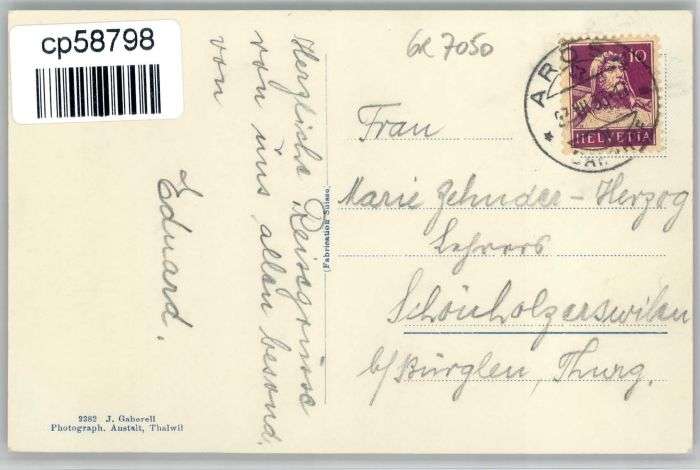 cp58798
GR 7050
Herzliche Reisegrüsse
von uns allen besond.
von
Eduard.
(Fabrication Suisse)
Frau
Marie Zehnder-Herzog
Lehrers
Schönholzerswilen
b/Bürglen, Thurg.
10
HELVETIA
AROSA
2382 J. Gaberell
Photograph. Anstalt, Thalwil